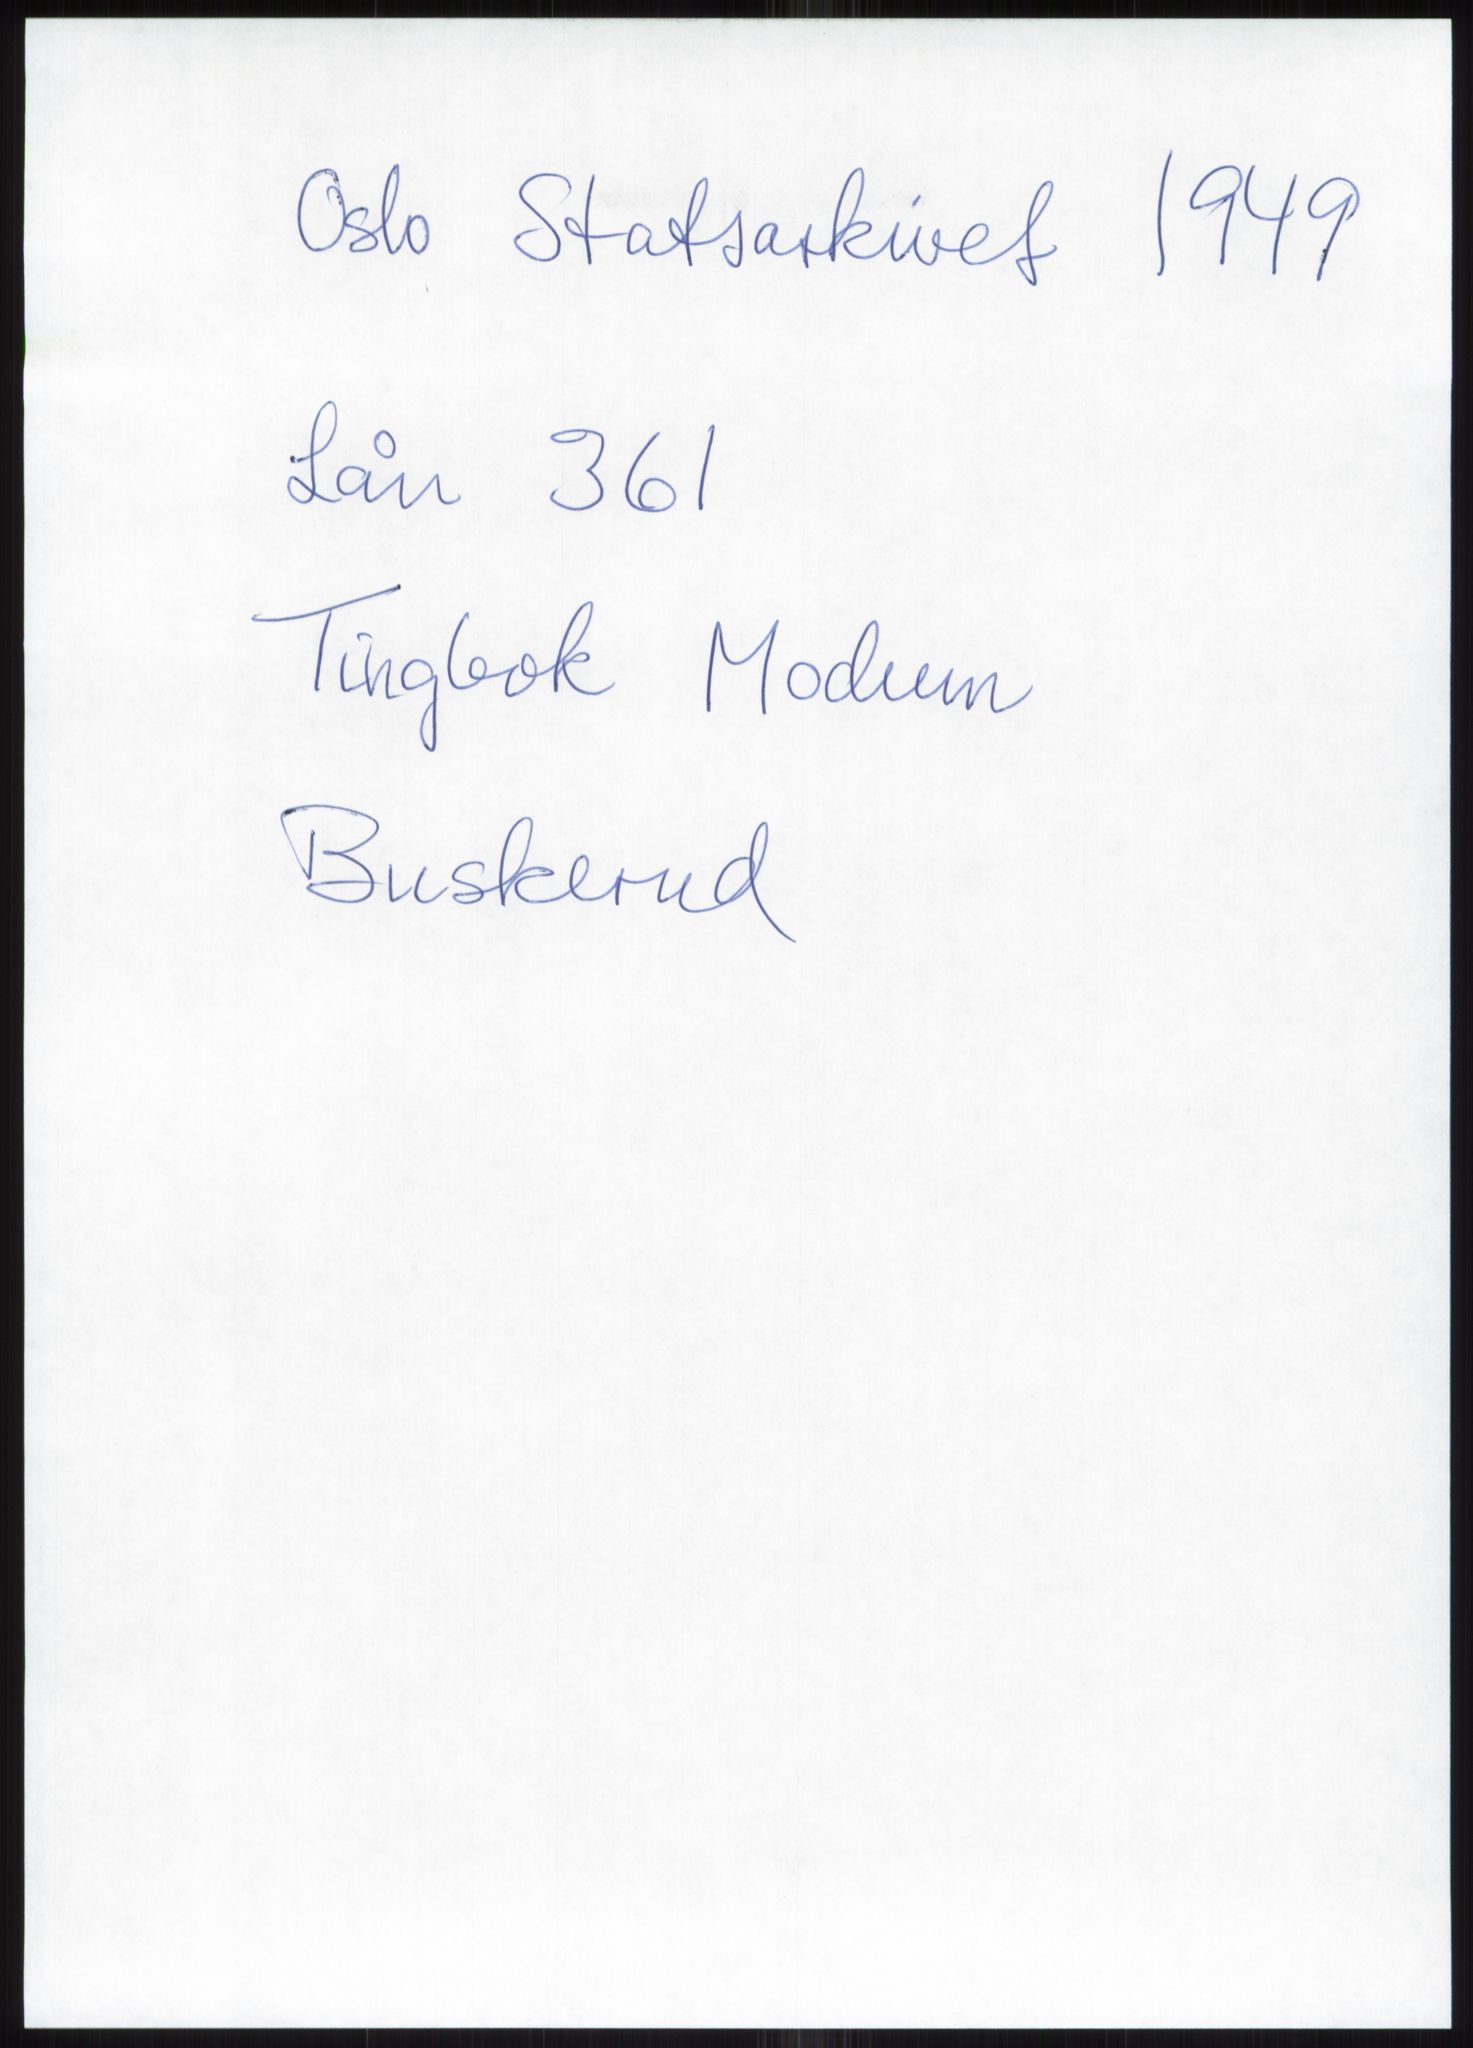 Oslo Statsarkivet 1949
Lån 361
Tingbok Modum
Buskerud